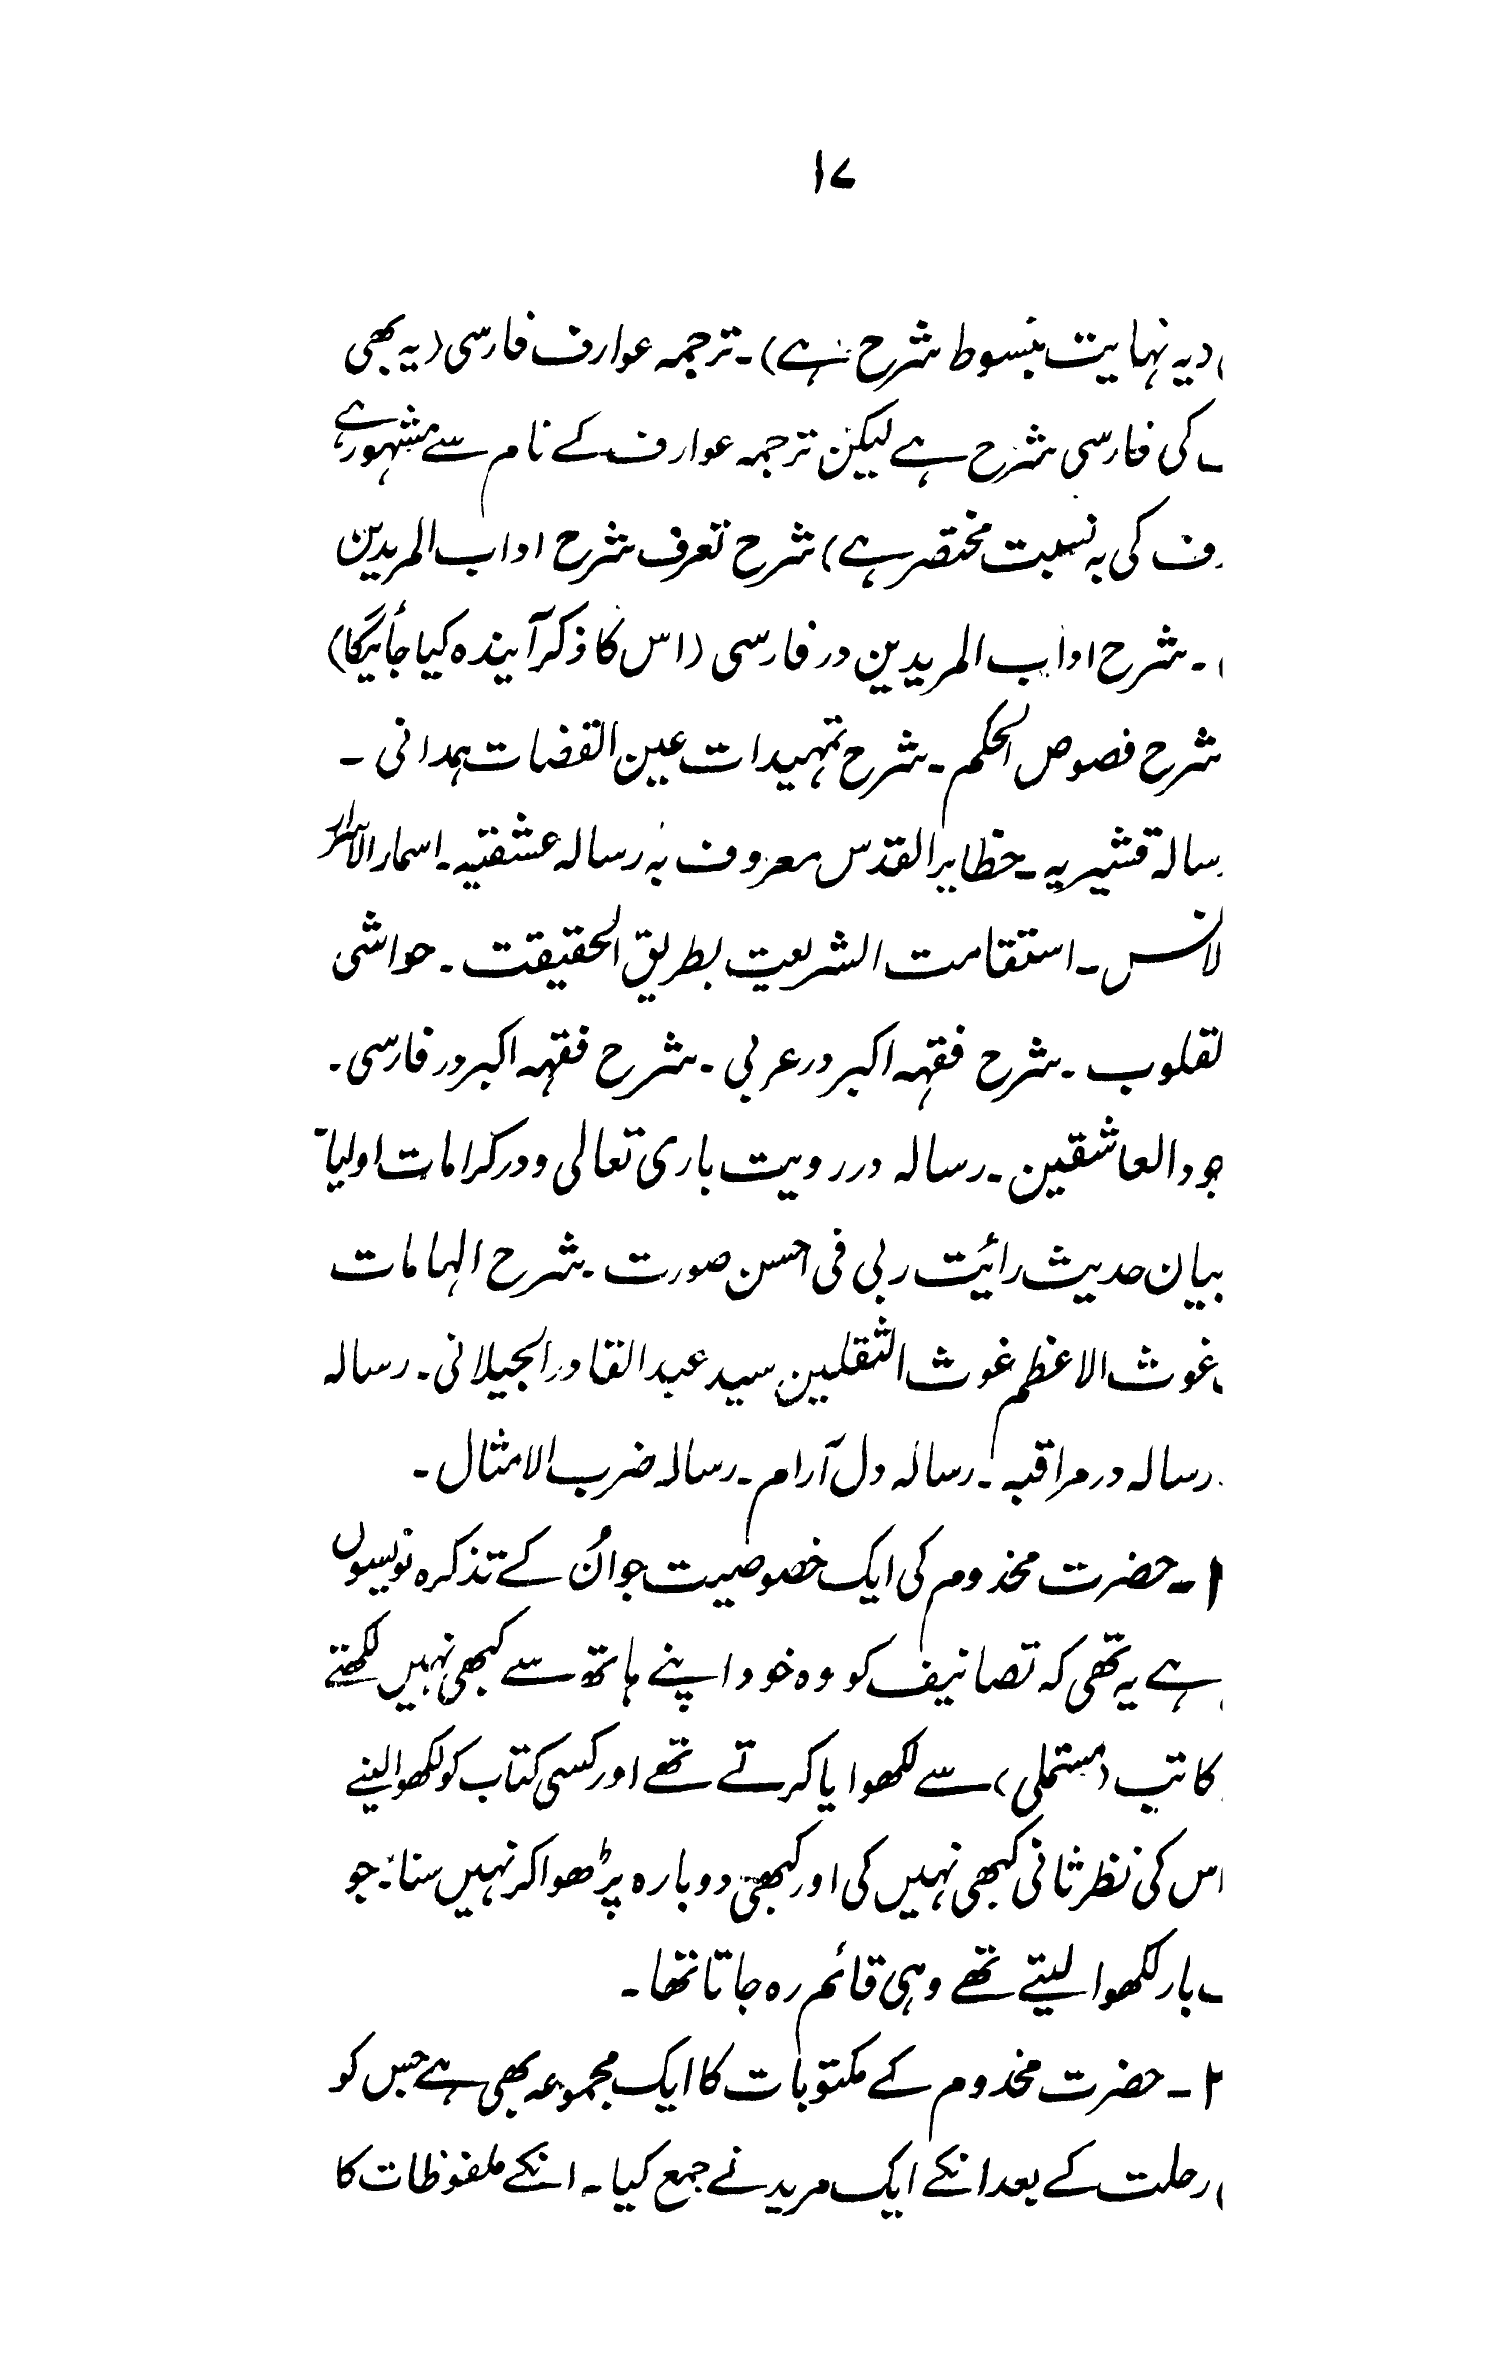 ۱۷
(یہ نہایت مبسوط شرح ہے)۔ ترجمہ عوارف فارسی (یہ بھی
کی فارسی شرح ہے لیکن ترجمہ عوارف کے نام سے مشہور ہے
رف کی بہ نسبت مختصر ہے) شرح تعرف شرح اداب المریدین
۔ شرح اداب المریدین در فارسی (اس کا ذکر آیندہ کیا جائیگا)
شرح فصوص الحکم۔ شرح تمہیدات عین القضات ہمدانی ۔
رسالہ قشیریہ۔ حظایر القدس معروف بہ رسالہ عشقیہ۔ اسمار الاسرار
لانس۔ استقامت الشریعت بطریق الحقیقت ۔ حواشی
لقلوب ۔ شرح فقہہ اکبر در عربی ۔ شرح فقہہ اکبر در فارسی ۔
جود العاشقین۔ رسالہ در رویت باری تعالی و در کرامات اولیا
بیان حدیث رائیت ربی فی احسن صورت ۔ شرح الہامات
غوث الاعظم غوث الثقلین سید عبد القادر الجیلانی ۔ رسالہ
رسالہ در مراقبہ ۔ رسالہ دل آرام ۔ رسالہ ضرب الامثال ۔
۔ حضرت مخدوم کی ایک خصوصیت جو اُن کے تذکرہ نویسوں
ہے یہ تھی کہ تصانیف کو وہ خود اپنے ہاتھ سے کبھی نہیں لکھتے
کاتب (مستملی) سے لکھوایا کرتے تھے اور کسی کتاب کو لکھوالینے
اس کی نظر ثانی کبھی نہیں کی اور کبھی دوبارہ پڑھوا کر نہیں سنا ۔ جو
بار لکھوا لیتے تھے وہی قائم رہ جاتا تھا ۔
۔ حضرت مخدوم کے مکتوبات کا ایک مجموعہ بھی ہے جس کو
رحلت کے بعد انکے ایک مرید نے جمع کیا ۔ انکے ملفوظات کا